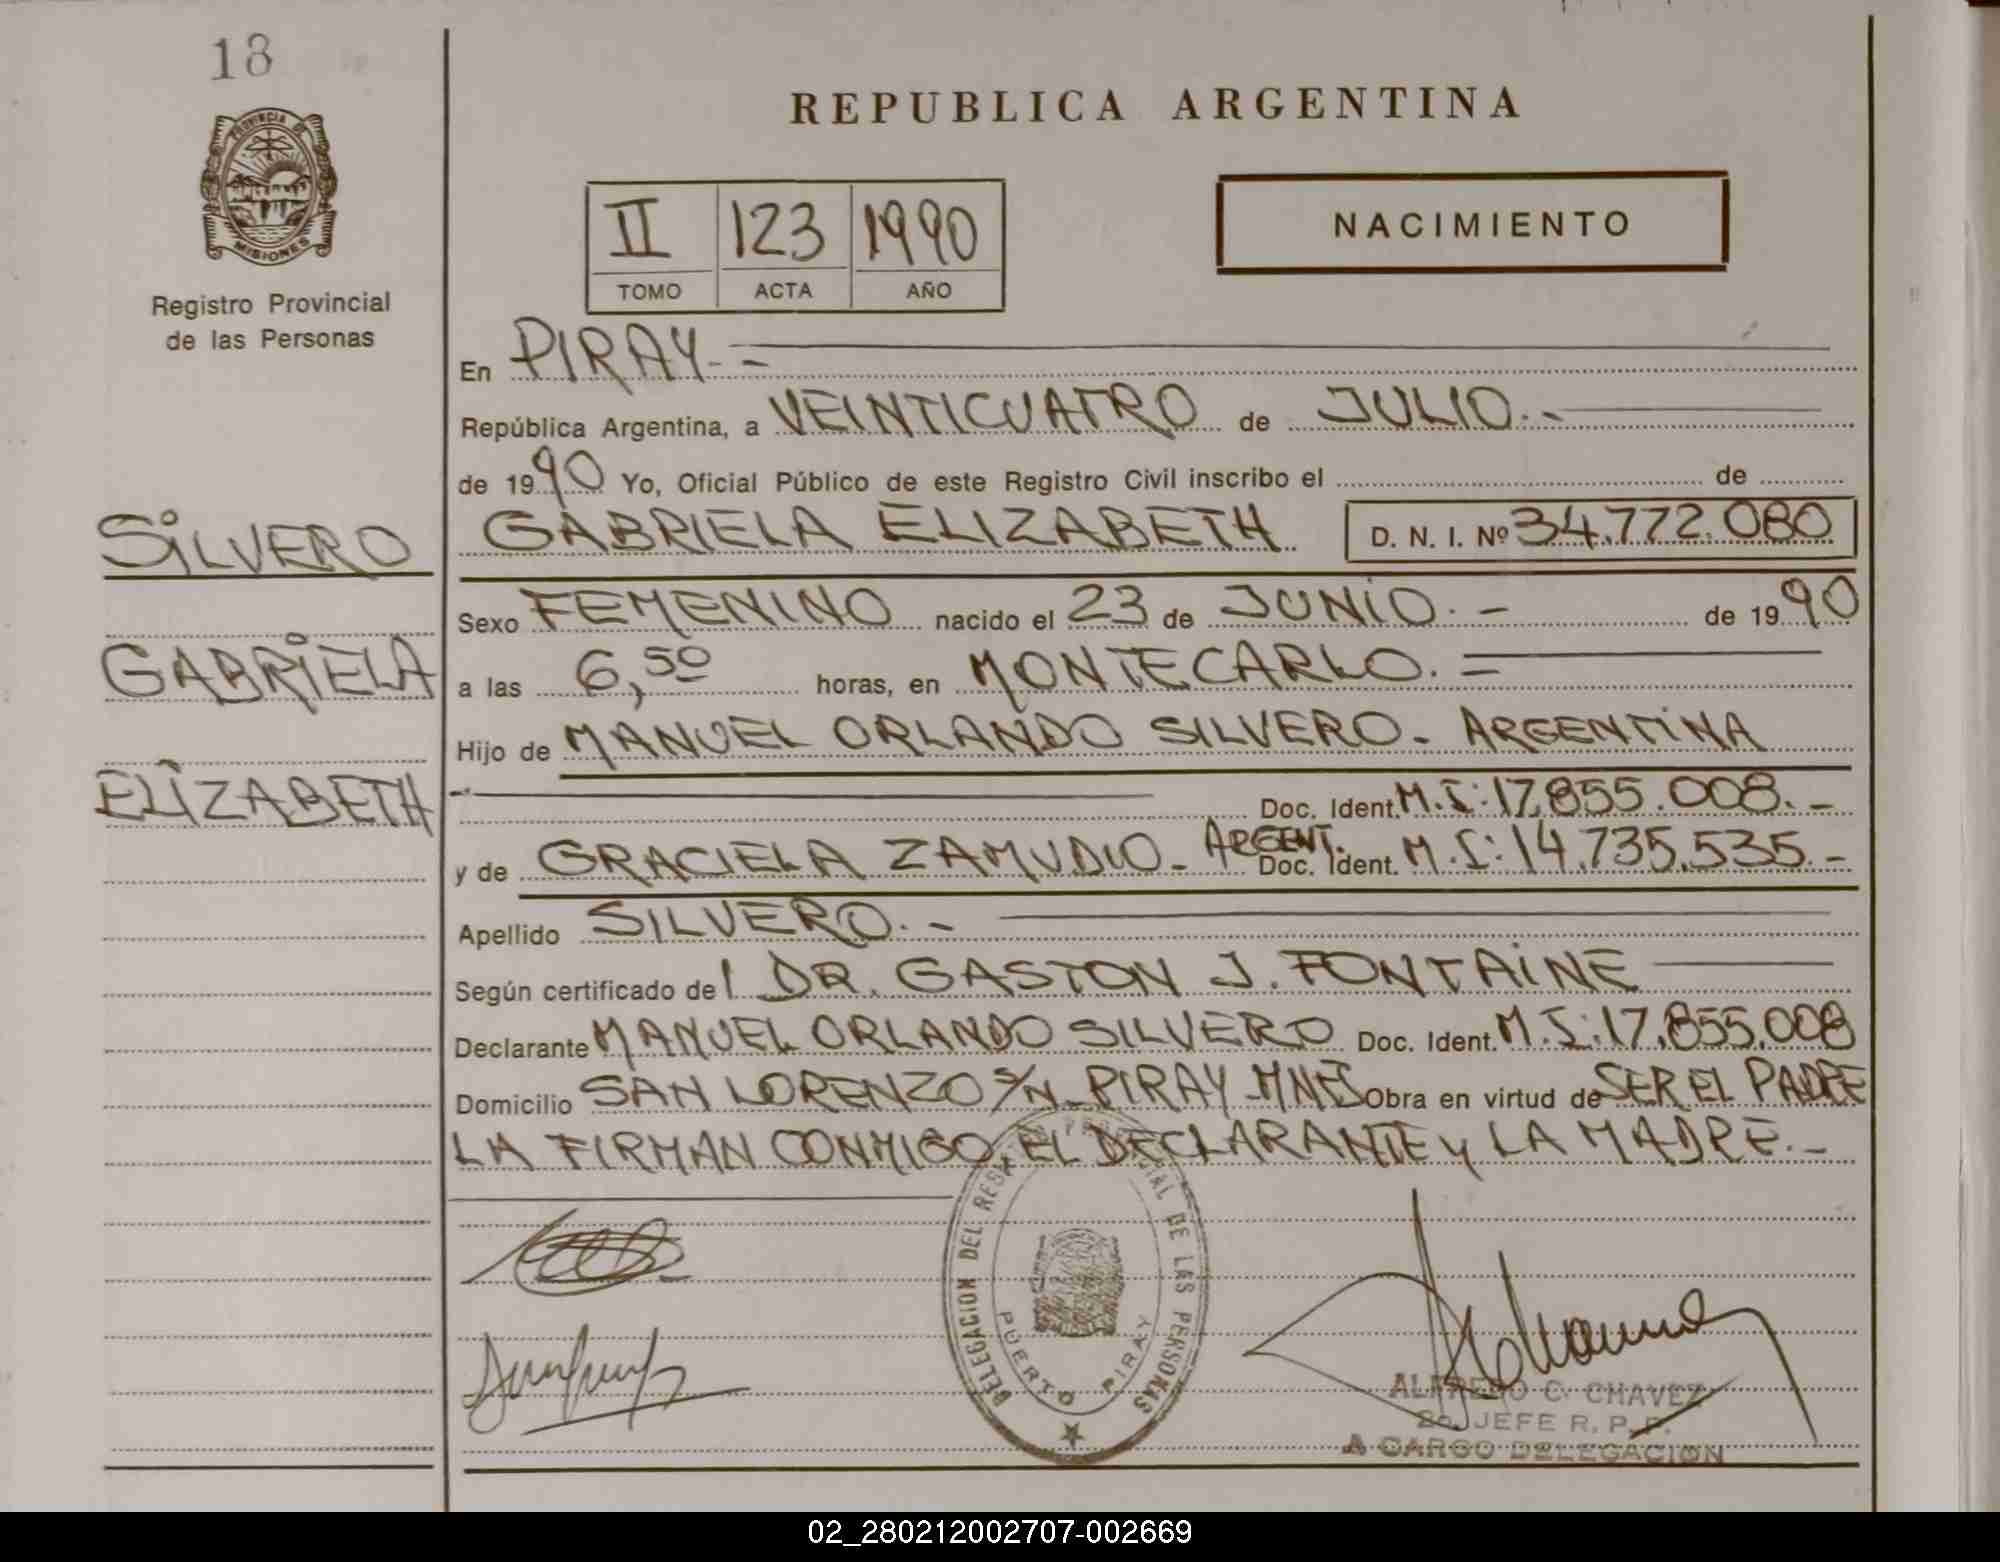 18
PROVINCIA DE
MISIONES
Registro Provincial
de las Personas
SILVERO
GABRIELA
ELIZABETH
REPUBLICA ARGENTINA
II 123 1990
TOMO ACTA AÑO
NACIMIENTO
En PIRAY.-
República Argentina, a VEINTICUATRO de JULIO.-
de 1990 Yo, Oficial Público de este Registro Civil inscribo el de
GABRIELA ELIZABETH D. N. I. Nº 34.772.080
Sexo FEMENINO nacido el 23 de JUNIO.- de 1990
a las 6,50 horas, en MONTECARLO.=
Hijo de MANUEL ORLANDO SILVERO. ARGENTINA
Doc. Ident. M.I:17.855.008.-
y de GRACIELA ZAMUDIO- ARGENT. Doc. Ident. M.I:14.735.535.-
Apellido SILVERO.-
Según certificado del DR. GASTON J. FONTAINE
Declarante MANUEL ORLANDO SILVERO Doc. Ident. M.I:17.855.008
Domicilio SAN LORENZO S/N- PIRAY-MNES Obra en virtud de SER EL PADRE
LA FIRMAN CONMIGO EL DECLARANTE y LA MADRE.-
DELEGACION DEL REGISTRO PROVINCIAL DE LAS PERSONAS
PUERTO PIRAY
ALFREDO C. CHAVEZ
2o. JEFE R. P. P.
A CARGO DELEGACION
02_280212002707-002669